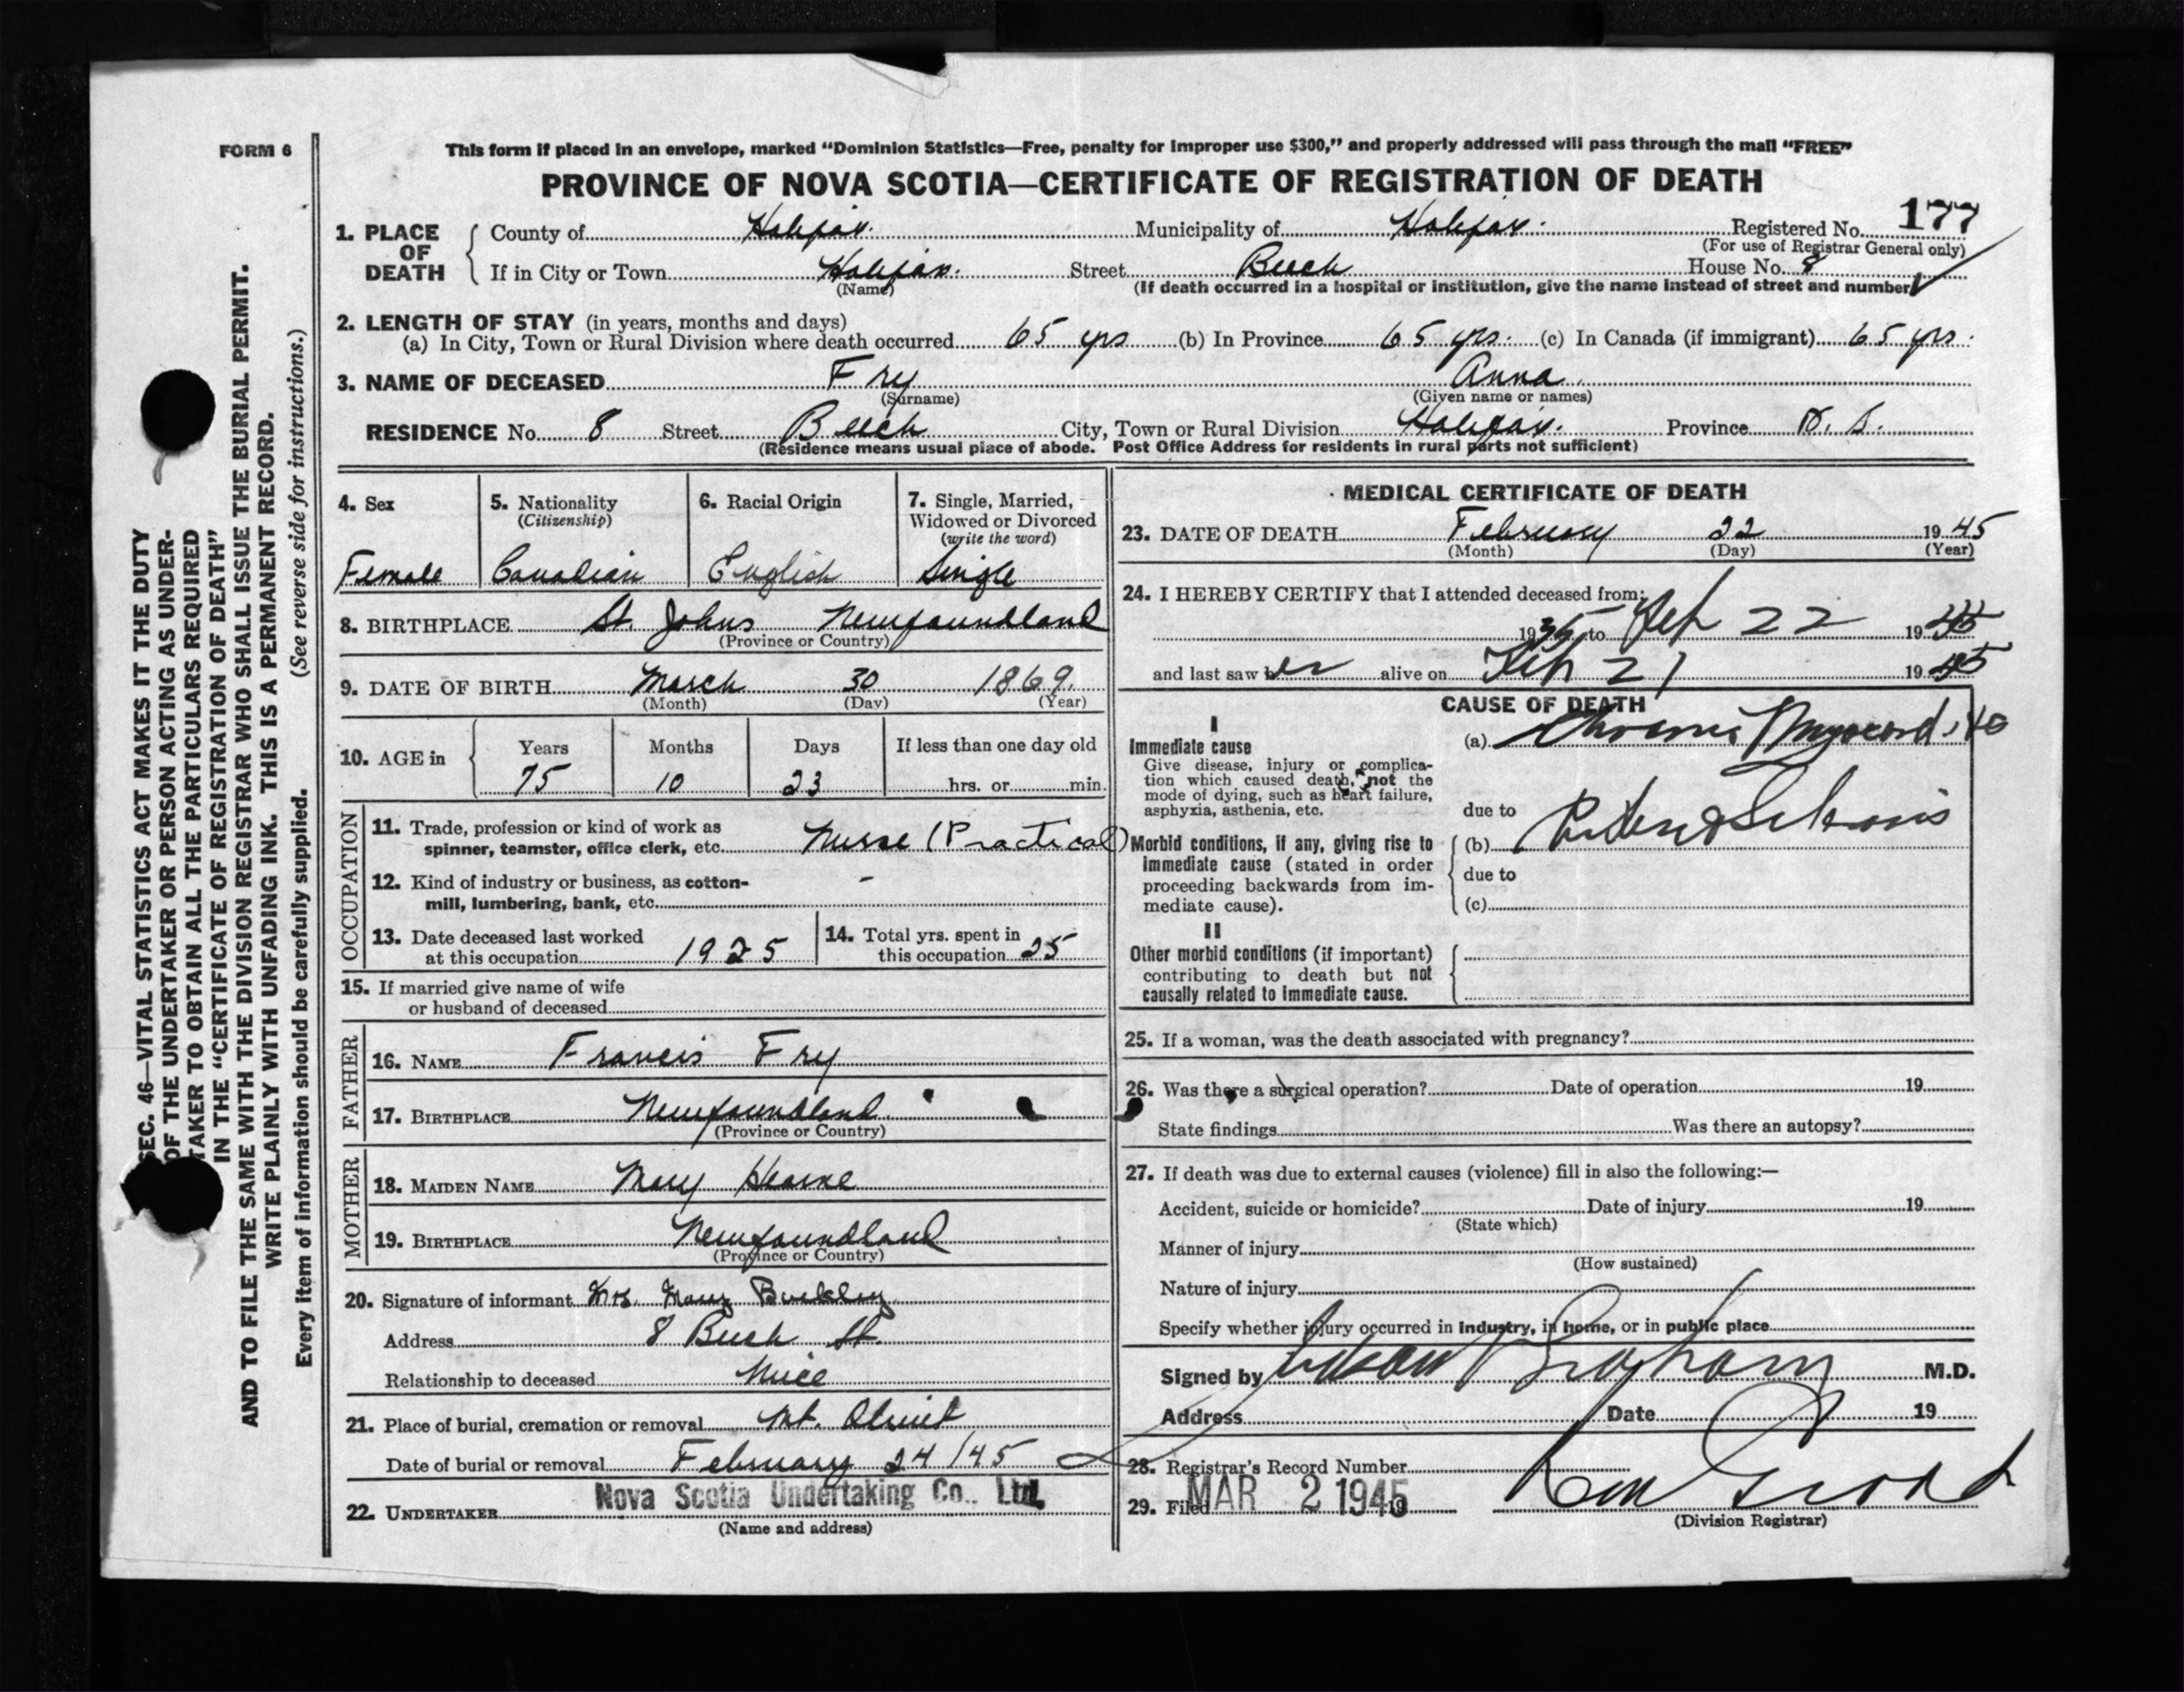 FORM 6
This form if placed in an envelope, marked "Dominion Statistics—Free, penalty for improper use $300," and properly addressed will pass through the mail "FREE"
PROVINCE OF NOVA SCOTIA—CERTIFICATE OF REGISTRATION OF DEATH
1. PLACE OF DEATH
County of Halifax. Municipality of Halifax. Registered No. 177
(For use of Registrar General only)
If in City or Town Halifax. Street Beech House No. 8
(Name) (If death occurred in a hospital or institution, give the name instead of street and number)
2. LENGTH OF STAY (in years, months and days)
(a) In City, Town or Rural Division where death occurred 65 yrs (b) In Province 65 yrs. (c) In Canada (if immigrant) 65 yrs.
3. NAME OF DECEASED Fry Anna
(Surname) (Given name or names)
RESIDENCE No. 8 Street Beech City, Town or Rural Division Halifax. Province N. S.
(Residence means usual place of abode. Post Office Address for residents in rural parts not sufficient)
4. Sex
Female
5. Nationality
(Citizenship)
Canadian
6. Racial Origin
English
7. Single, Married,
Widowed or Divorced
(write the word)
Single
8. BIRTHPLACE St. Johns Newfoundland
(Province or Country)
9. DATE OF BIRTH March 30 1869.
(Month) (Day) (Year)
10. AGE in
Years Months Days If less than one day old
75 10 23 hrs. or min.
OCCUPATION
11. Trade, profession or kind of work as
spinner, teamster, office clerk, etc. Nurse (Practical)
12. Kind of industry or business, as cotton- -
mill, lumbering, bank, etc.
13. Date deceased last worked
at this occupation 1925
14. Total yrs. spent in
this occupation 25
15. If married give name of wife
or husband of deceased
FATHER
16. NAME Francis Fry
17. BIRTHPLACE Newfoundland
(Province or Country)
MOTHER
18. MAIDEN NAME Mary Hearne
19. BIRTHPLACE Newfoundland
(Province or Country)
20. Signature of informant Mrs. Mary Buckley
Address 8 Beech St.
Relationship to deceased Niece
21. Place of burial, cremation or removal Mt. Olivet
Date of burial or removal February 24/45
22. UNDERTAKER Nova Scotia Undertaking Co., Ltd.
(Name and address)
MEDICAL CERTIFICATE OF DEATH
23. DATE OF DEATH February 22 1945
(Month) (Day) (Year)
24. I HEREBY CERTIFY that I attended deceased from:
1935 to Feb 22 1945
and last saw her alive on Feb 21 1945
CAUSE OF DEATH
I
Immediate cause
Give disease, injury or complica-
tion which caused death, not the
mode of dying, such as heart failure,
asphyxia, asthenia, etc.
(a) Chronic Myocarditis
due to
Morbid conditions, if any, giving rise to
immediate cause (stated in order
proceeding backwards from im-
mediate cause).
(b)
due to
(c)
II
Other morbid conditions (if important)
contributing to death but not
causally related to immediate cause.
25. If a woman, was the death associated with pregnancy?
26. Was there a surgical operation? Date of operation 19
State findings Was there an autopsy?
27. If death was due to external causes (violence) fill in also the following:—
Accident, suicide or homicide? Date of injury 19
(State which)
Manner of injury
(How sustained)
Nature of injury
Specify whether injury occurred in industry, in home, or in public place
Signed by M.D.
Address Date 19
28. Registrar's Record Number
29. Filed MAR 2 1945 19
(Division Registrar)
SEC. 46—VITAL STATISTICS ACT MAKES IT THE DUTY
OF THE UNDERTAKER OR PERSON ACTING AS UNDER-
TAKER TO OBTAIN ALL THE PARTICULARS REQUIRED
IN THE "CERTIFICATE OF REGISTRATION OF DEATH"
AND TO FILE THE SAME WITH THE DIVISION REGISTRAR WHO SHALL ISSUE THE BURIAL PERMIT.
WRITE PLAINLY WITH UNFADING INK. THIS IS A PERMANENT RECORD.
Every item of information should be carefully supplied. (See reverse side for instructions.)